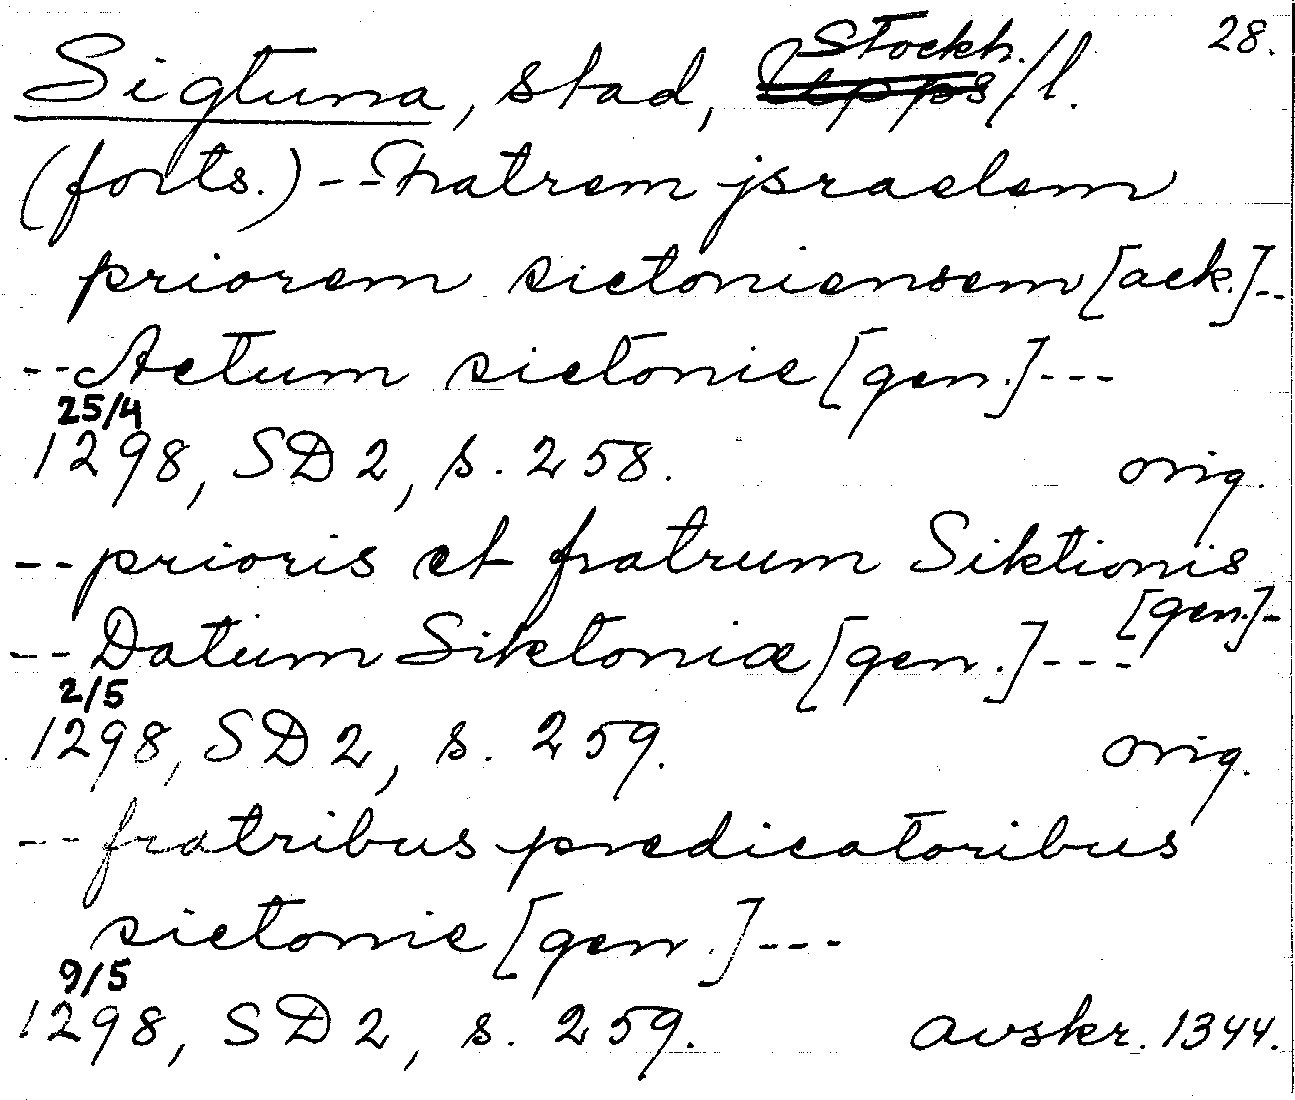 28.
Sigtuna, stad, Stockh./l.
(forts.) -- fratrem jsraelem
priorem sictoniensem [ack.]--
-- Actum sictonie [gen.]---
25/4
1298, SD 2, s. 258. orig.
-- prioris et fratrum Siktionis
[gen.]-
-- Datum Siktoniæ [gen.]---
2/5
1298, SD 2, s. 259. orig.
-- fratribus predicatoribus
sictonie [gen.]---
9/5
1298, SD 2, s. 259. avskr. 1344.